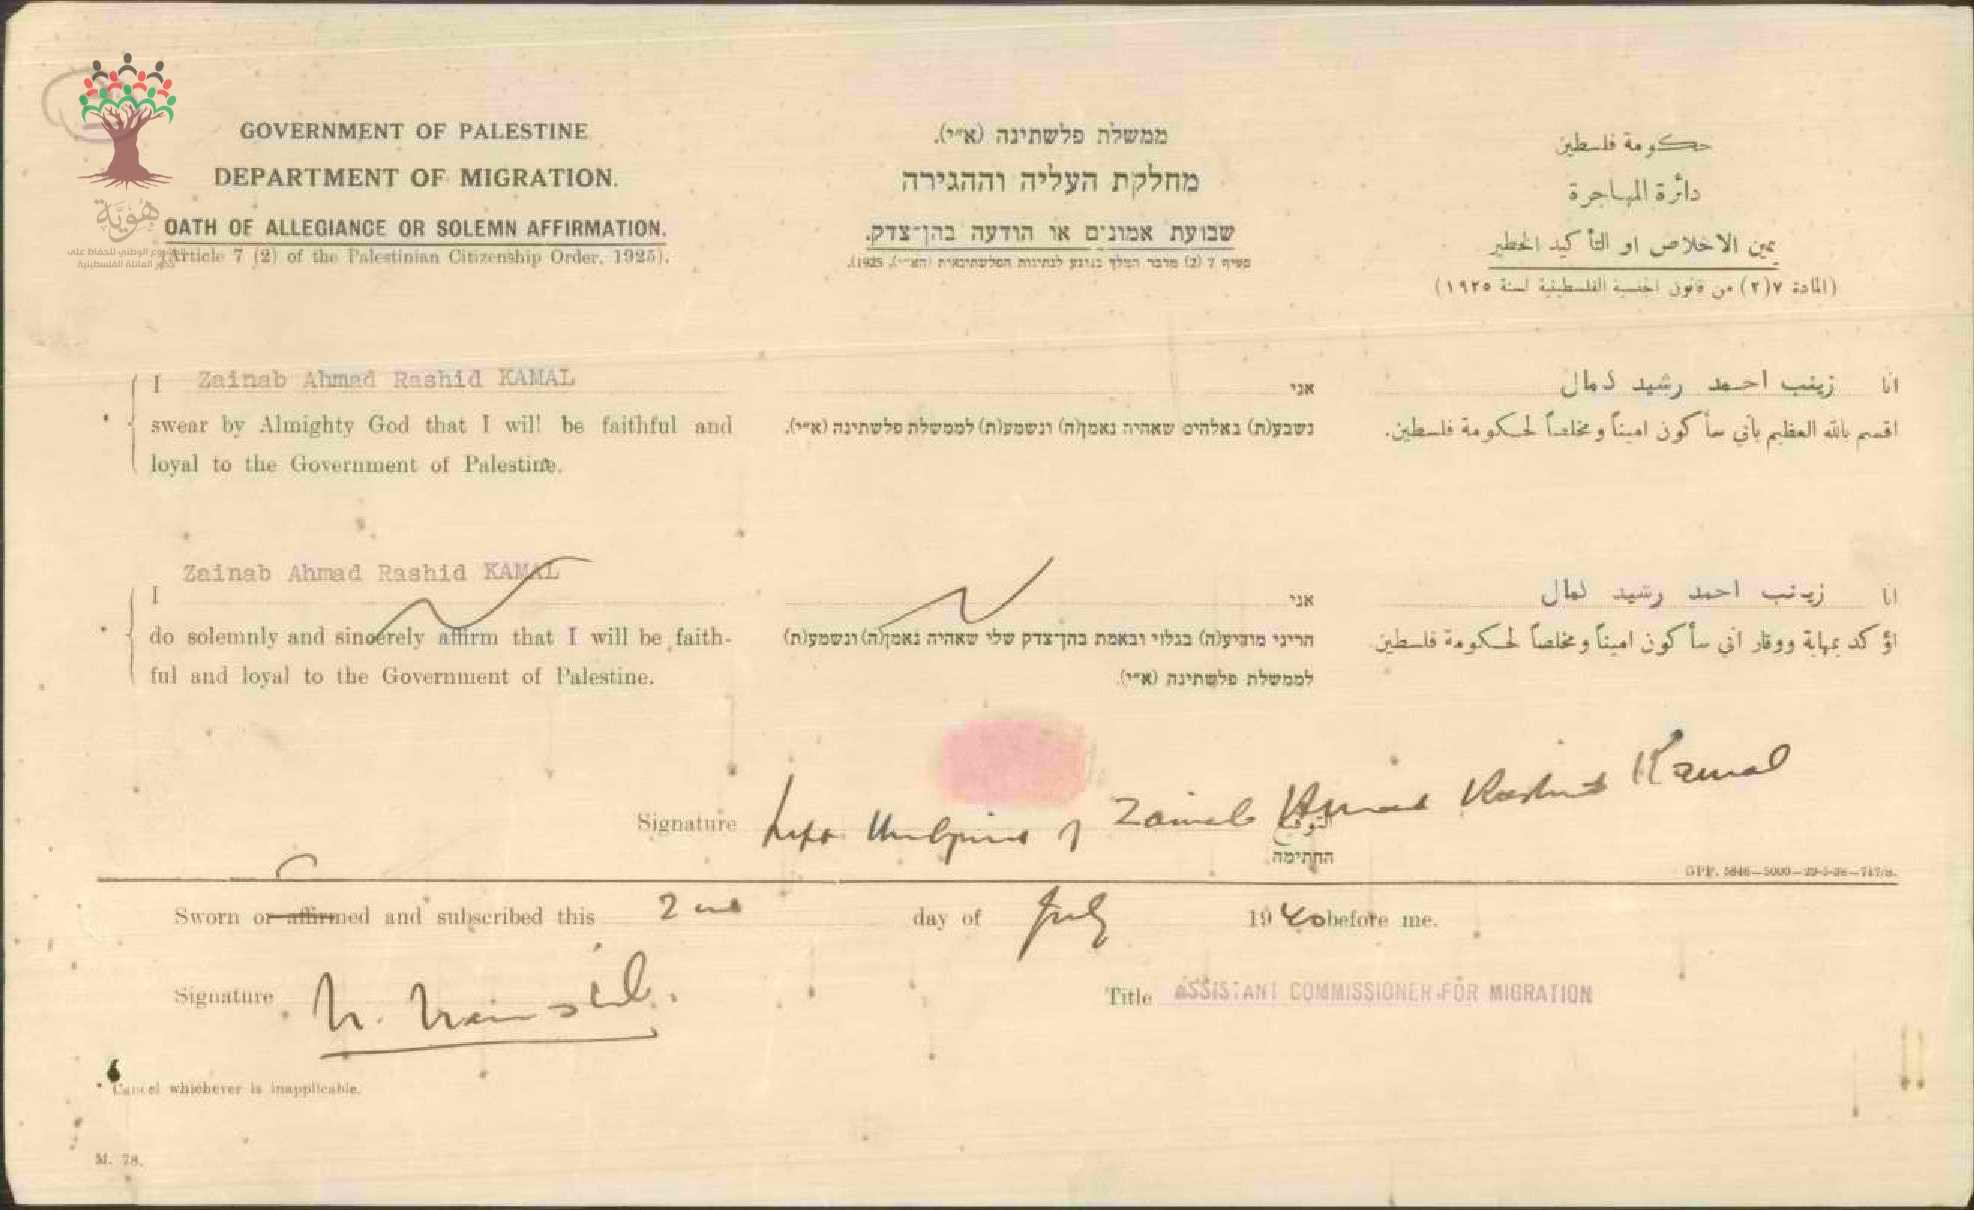 GOVERNMENT OF PALESTINE
DEPARTMENT OF MIGRATION.
OATH OF ALLEGIANCE OR SOLEMN AFFIRMATION.
(Article 7 (2) of the Palestinian Citizenship Order, 1925).
ממשלת פלשתינה (א״י).
מחלקת העליה וההגירה
שבועת אמונים או הודעה בהן־צדק.
حكومة فلسطين
دائرة المهاجرة
يمين الاخلاص او التأكيد الخطير
(المادة ٧(٢) من قانون الجنسية الفلسطينية لسنة ١٩٢٥)
هُويَّة
I Zainab Ahmad Rashid KAMAL
swear by Almighty God that I will be faithful and
loyal to the Government of Palestine.
אני
נשבע(ת) באלהים שאהיה נאמן(ה) ונשמע(ת) לממשלת פלשתינה (א״י).
انا زينب احمد رشيد كمال
اقسم بالله العظيم بأني سأكون اميناً ومخلصاً لحكومة فلسطين.
Zainab Ahmad Rashid KAMAL
I
do solemnly and sincerely affirm that I will be faith-
ful and loyal to the Government of Palestine.
אני
הריני מודיע(ה) בגלוי ובאמת בהן־צדק שלי שאהיה נאמן(ה) ונשמע(ת)
לממשלת פלשתינה (א״י).
انا زينب احمد رشيد كمال
اؤكد بمهابة ووقار اني سأكون اميناً ومخلصاً لحكومة فلسطين.
Signature of Zainab Ahmad Rashid Kamal
التوقيع
החתימה
Sworn or affirmed and subscribed this 2nd day of July 1940 before me.
Signature
Title ASSISTANT COMMISSIONER FOR MIGRATION
* Cancel whichever is inapplicable.
M. 78.